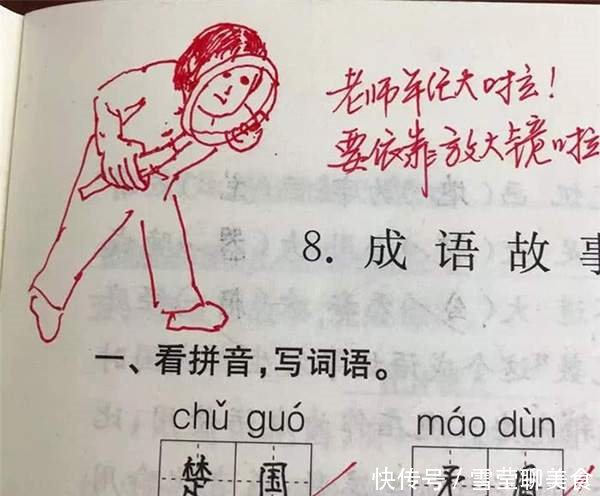 老师年纪大啦！
要依靠放大镜啦
8. 成语故事
一、看拼音，写词语。
chǔ guó
máo dùn
楚国
矛盾
快传号 / 雪莹聊美食